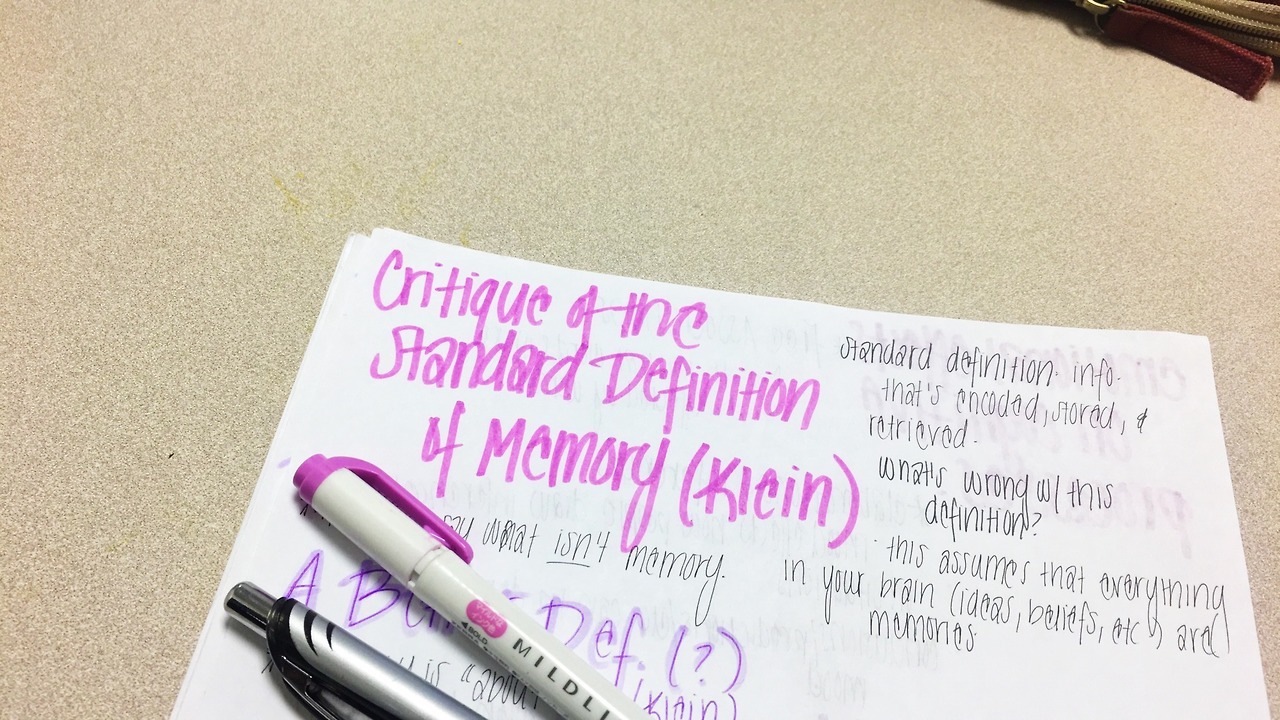 Critique of the
Standard Definition
of Memory (Klein)
standard definition: info.
that's encoded, stored, &
retrieved.
what's wrong w/ this
definition?
· this assumes that everything
in your brain (ideas, beliefs, etc.) are
memories
say what isn't memory.
A Def. (?)
is "about
(Klein)
BOLD
MILDLI